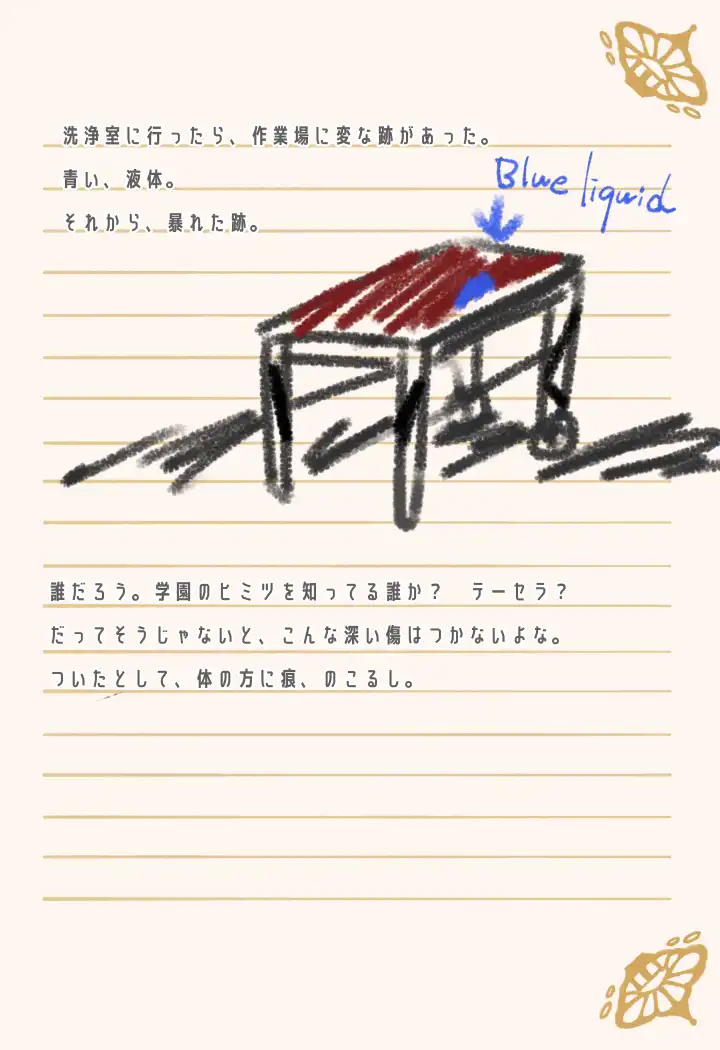 洗浄室に行ったら、作業場に変な跡があった。
青い、液体。
それから、暴れた跡。
Blue liquid
誰だろう。学園のヒミツを知ってる誰か？　テーセラ？
だってそうじゃないと、こんな深い傷はつかないよな。
ついたとして、体の方に痕、のこるし。